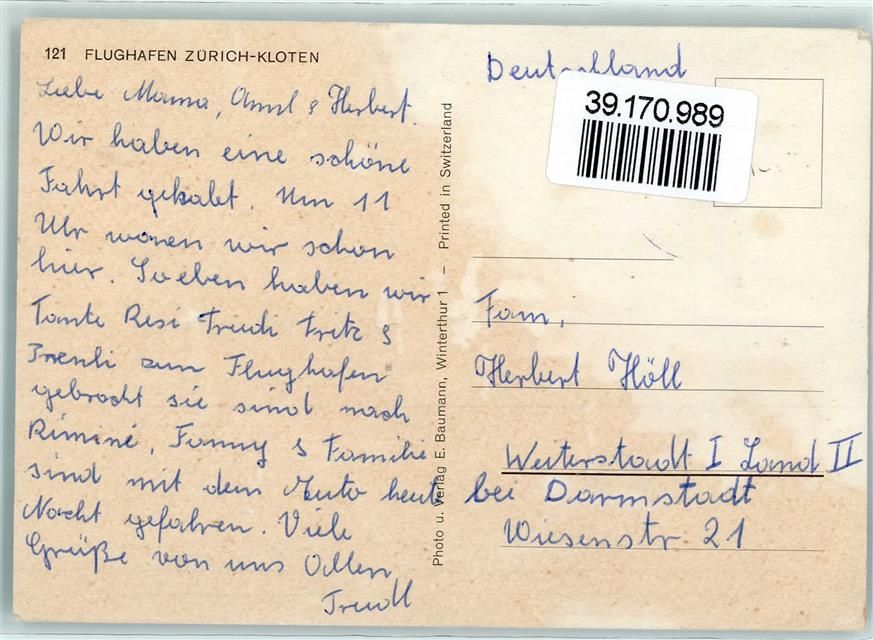 121 FLUGHAFEN ZÜRICH-KLOTEN
Liebe Mama, & Herbert.
Wir haben eine schöne
Fahrt gehabt. Um 11
Uhr waren wir schon
hier. Soeben haben wir
Tante Resi Trudi Fritz &
zum Flughafen
gebracht sie sind nach
Rimini, Fanny & Familie
sind mit dem Auto heut
Nacht gefahren. Viele
Grüße von uns Allen
Trudl
Photo u. Verlag E. Baumann, Winterthur 1 – Printed in Switzerland
Deutschland
39.170.989
Fam,
Herbert Höll
Weiterstadt I Land II
bei Darmstadt
Wiesenstr 21